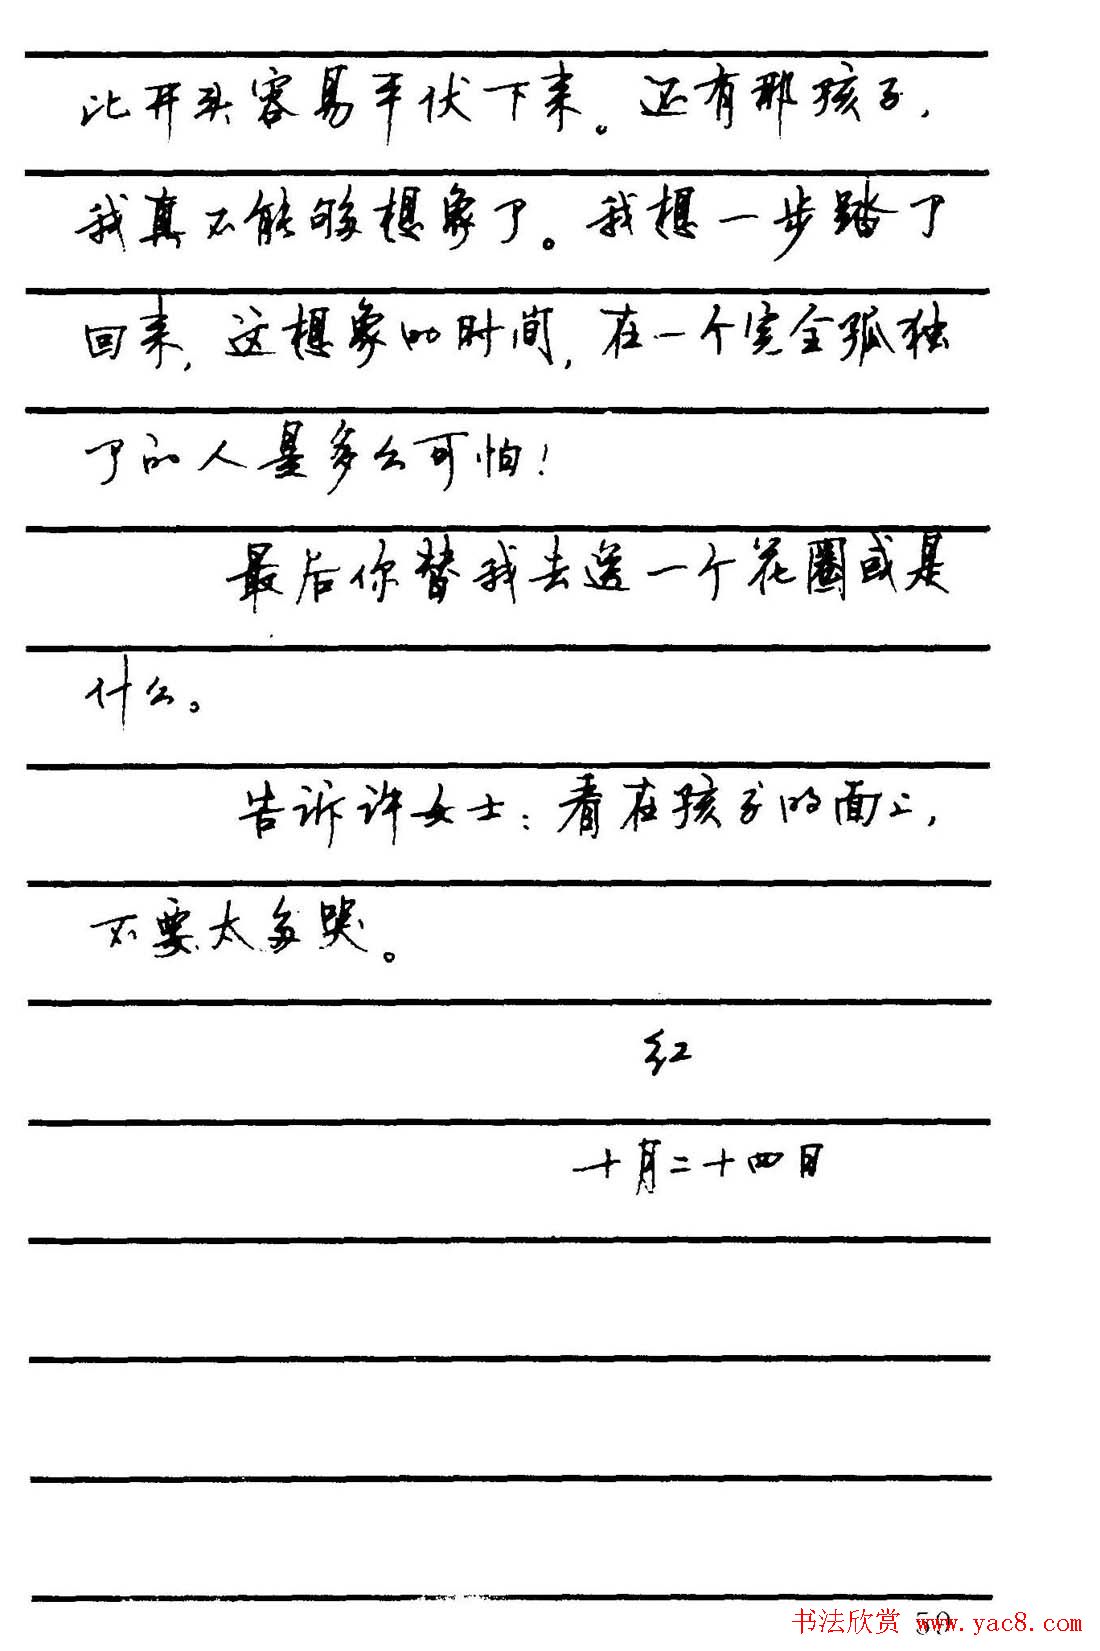 比开头容易平伏下来。还有那孩子，
我真不能够想象了。我想一步踏了
回来，这想象的时间，在一个完全孤独
了的人是多么可怕！
最后你替我去送一个花圈或是
什么。
告诉许女士：看在孩子的面上，
不要太多哭。
红
十月二十四日
50
书法欣赏 www.yac8.com